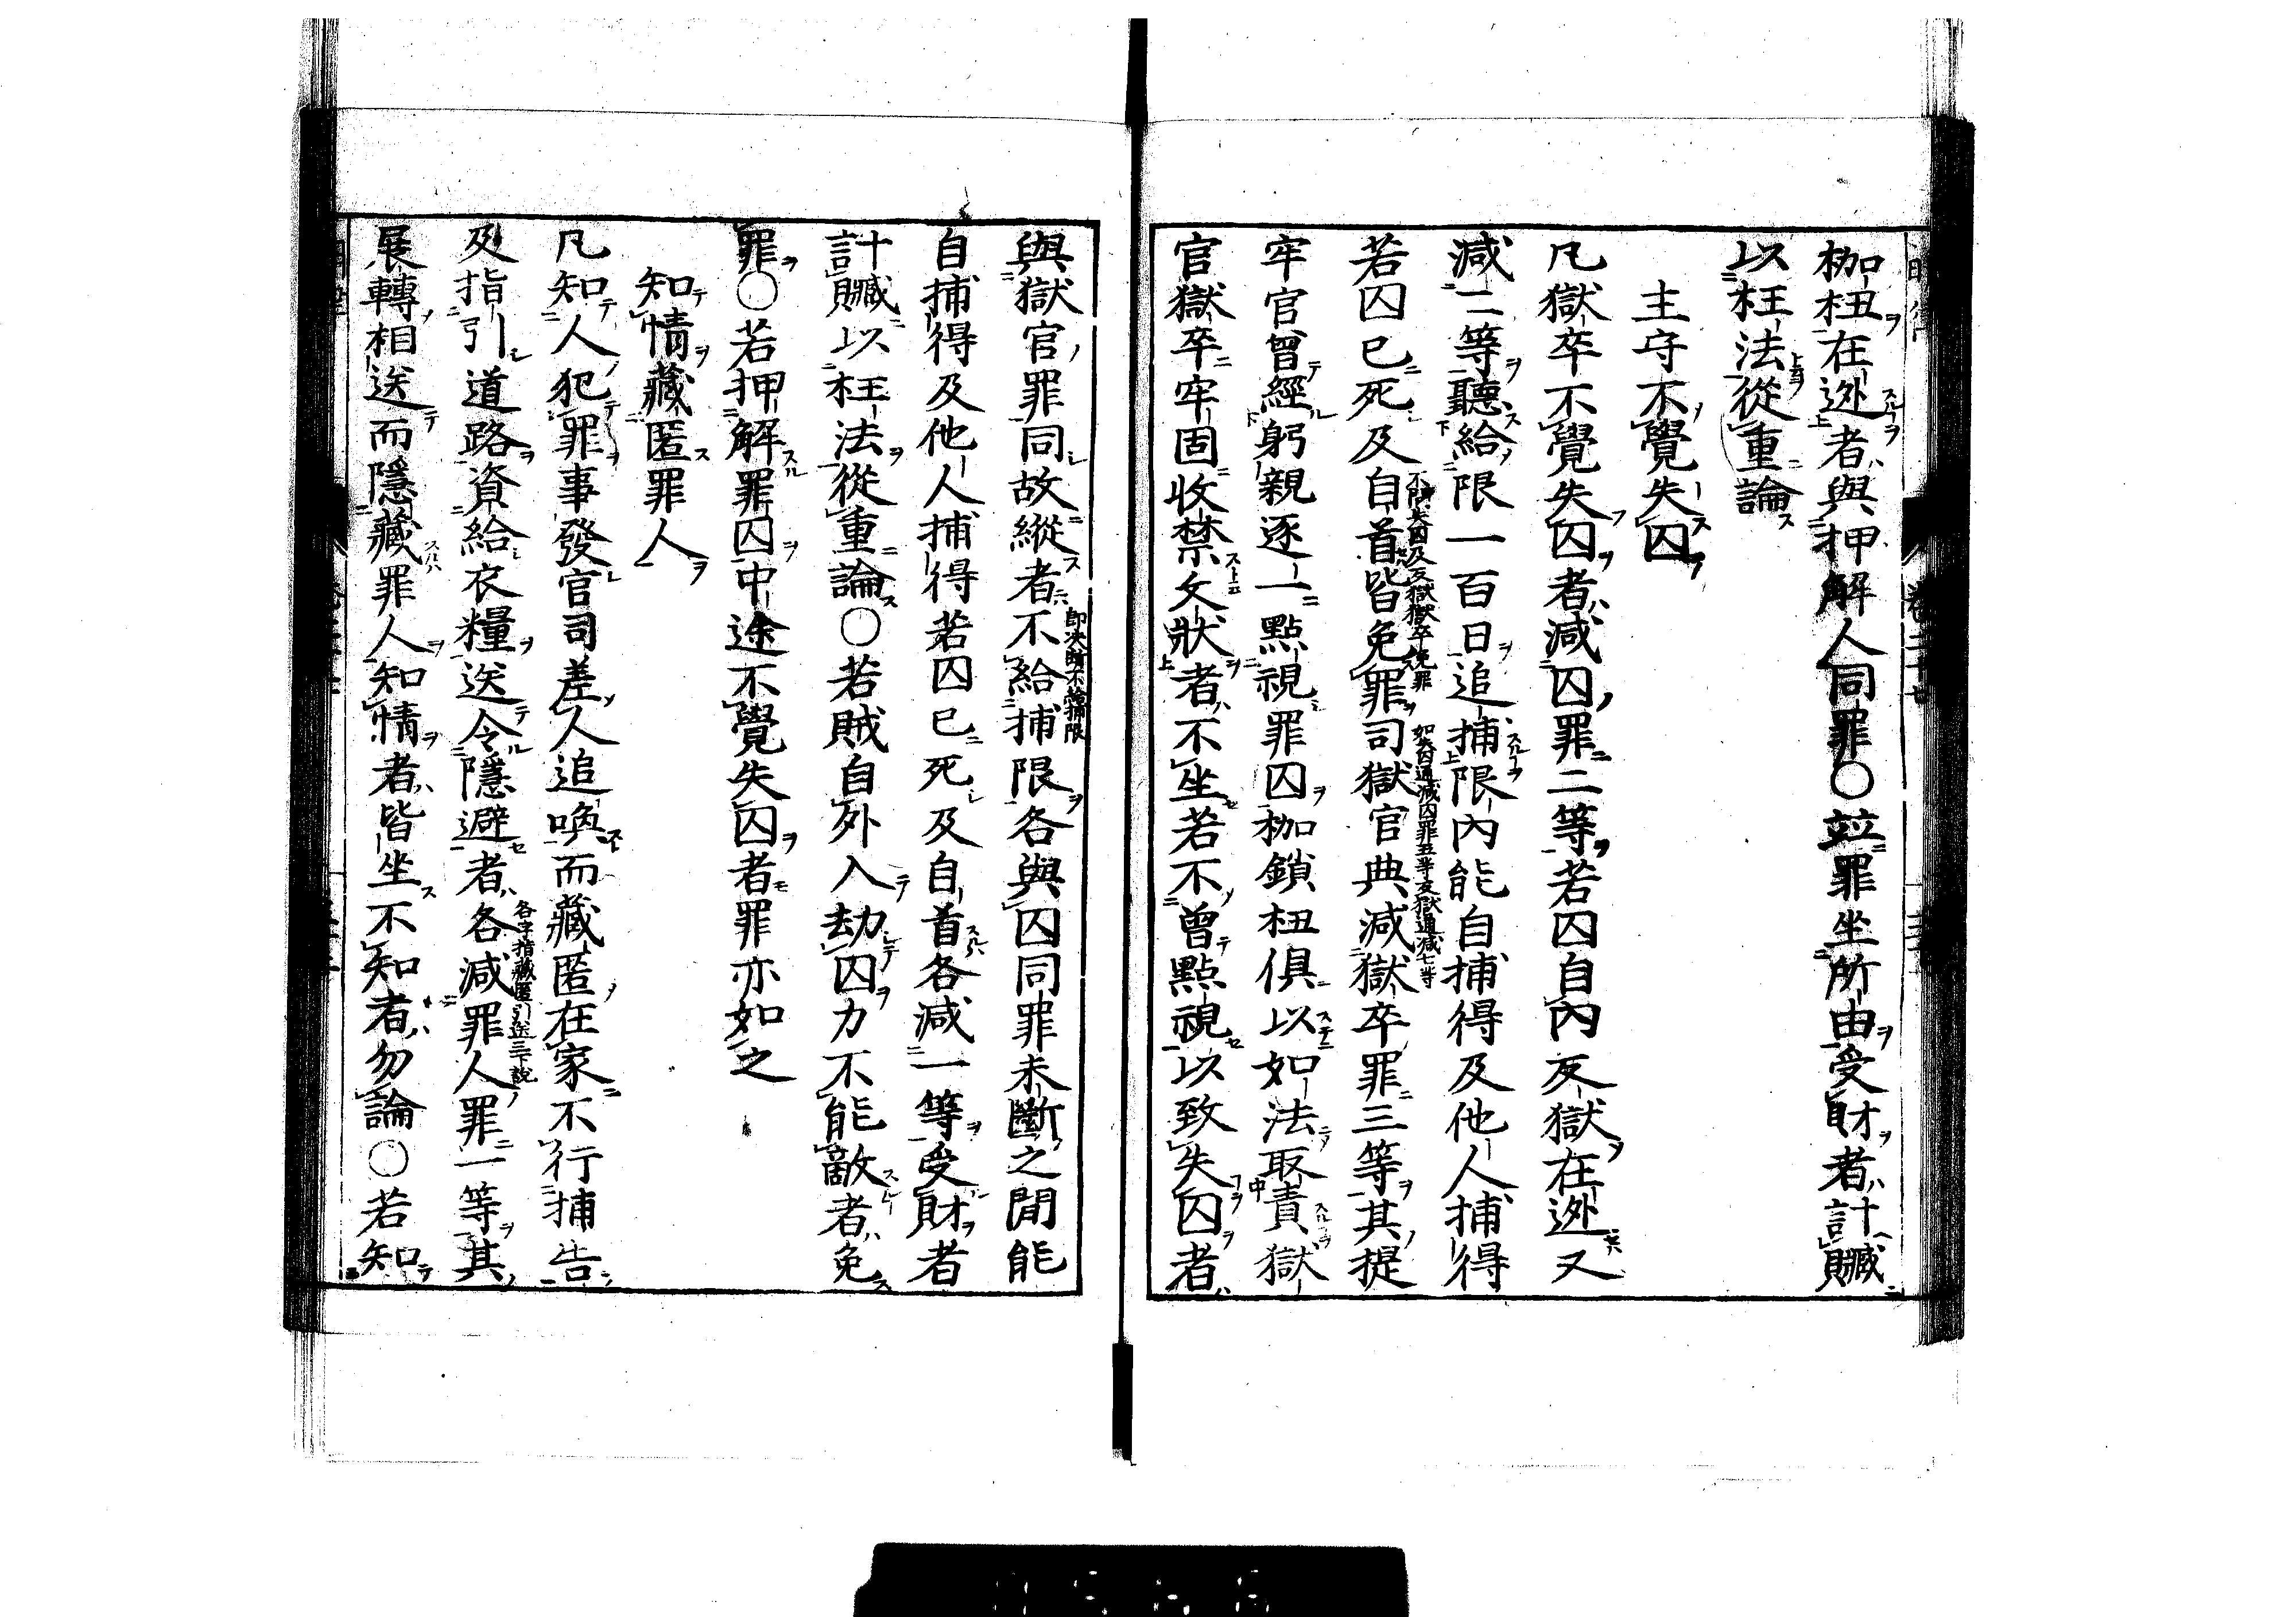 枷杻在逃者與押解人同罪〇竝罪坐所由受財者計贓
以枉法從重論
主守不覺失囚
凡獄卒不覺失囚者減囚罪二等若囚自內反獄在逃又
減二等聽給限一百日追捕限內能自捕得及他人捕得
若囚已死及自首皆免罪司獄官典減獄卒罪三等其提
不問失囚及反獄獄卒免罪
如失囚通減囚罪五等反獄通減七等
牢官曾經躬親逐一點視罪囚枷鎖杻俱以如法取責獄
官獄卒牢固收禁文狀者不坐若不曾點視以致失囚者
與獄官罪同故縱者不給捕限各與囚同罪未斷之間能
自捕得及他人捕得若囚已死及自首各減一等受財者
計贓以枉法從重論〇若賊自外入劫囚力不能敵者免
罪〇若押解罪囚中途不覺失囚者罪亦如之
知情藏匿罪人
凡知人犯罪事發官司差人追喚而藏匿在家不行捕告
及指引道路資給衣糧送令隱避者各減罪人罪一等其
展轉相送而隱藏罪人知情者皆坐不知者勿論〇若知